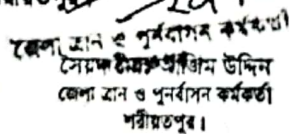 জেলা ত্রান ও পুর্নবাসন কর্মকর্তা
সৈয়দ আজিম উদ্দিন
জেলা ত্রান ও পুনর্বাসন কর্মকর্তা
শরীয়তপুর।